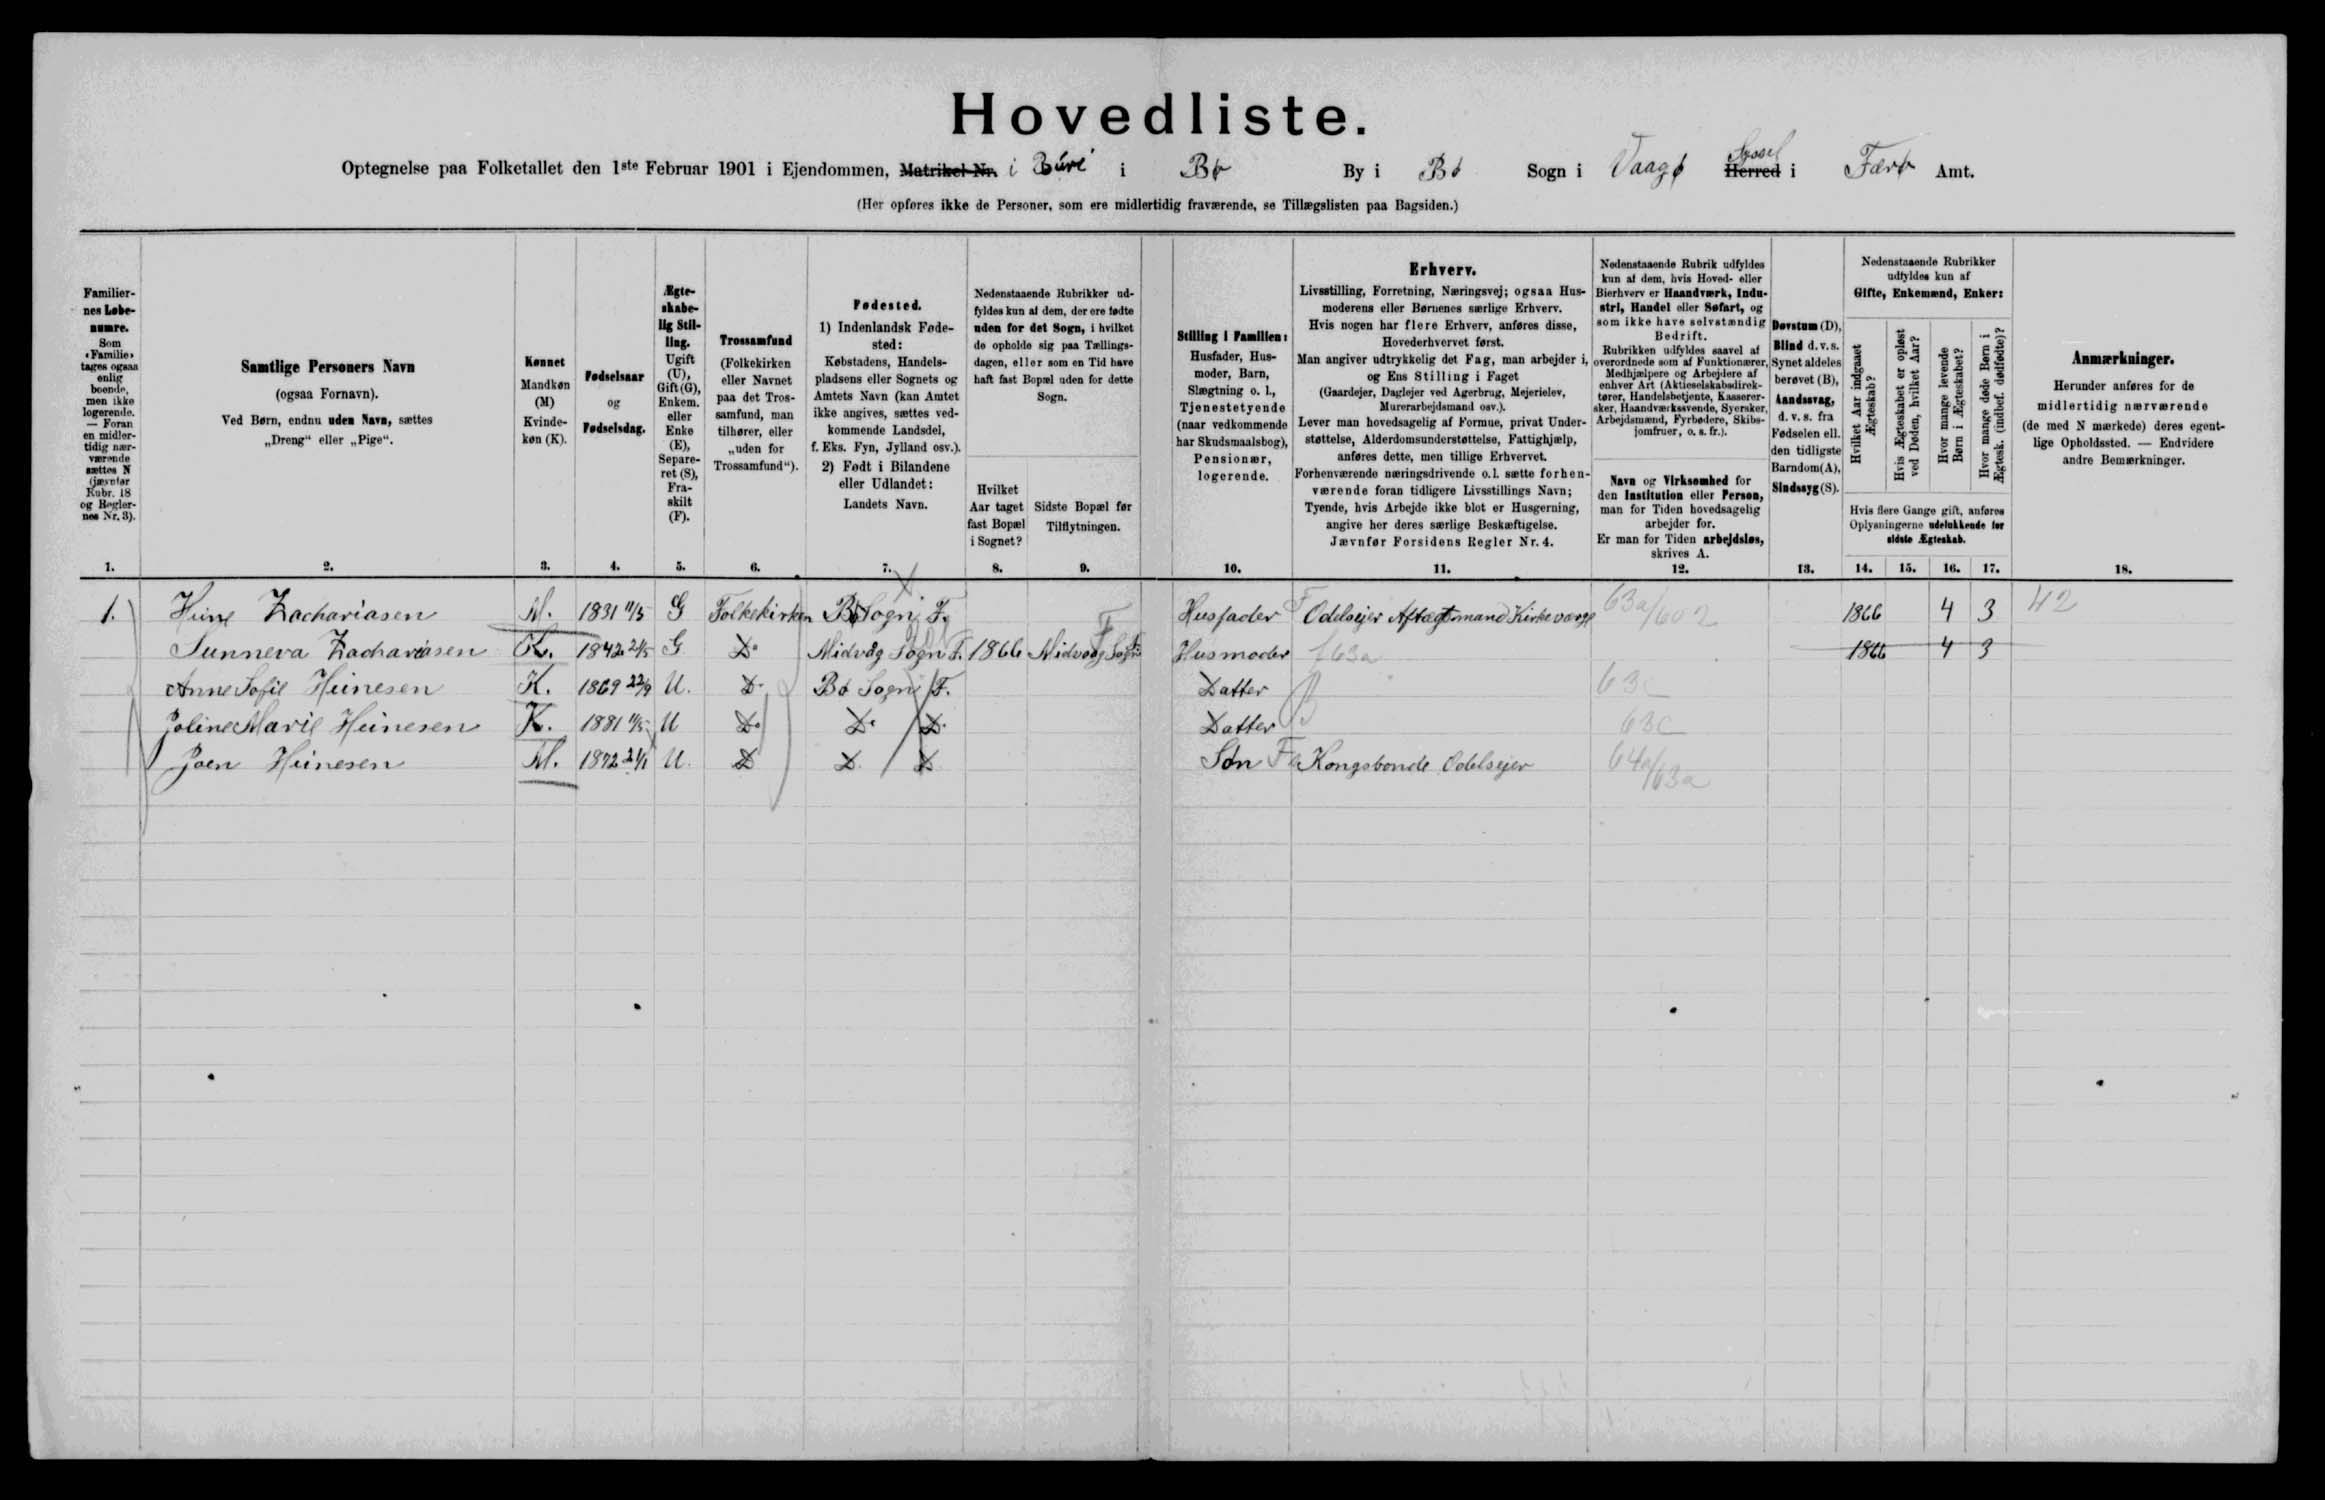 Hovedliste.
Optegnelse paa Folketallet den 1ste Februar 1901 i Ejendommen, Matrikel Nr. i Búri i Bø By i Bø Sogn i Vaagø Herred Syssel i Færø Amt.
(Her opføres ikke de Personer, som ere midlertidig fraværende, se Tillægslisten paa Bagsiden.)
Familiernes Løbenumre.
Som «Familie» tages ogsaa enlig boende, men ikke logerende. — Foran en midlertidig nærværende sættes N (jævnfør Rubr. 18 og Reglernes Nr. 3).
1.
Samtlige Personers Navn
(ogsaa Fornavn).
Ved Børn, endnu uden Navn, sættes
„Dreng“ eller „Pige“.
2.
Kønnet
Mandkøn (M)
Kvindekøn (K).
3.
Fødselsaar
og
Fødselsdag.
4.
Ægteskabelig Stilling.
Ugift (U), Gift (G), Enkem. eller Enke (E), Separeret (S), Fraskilt (F).
5.
Trossamfund
(Folkekirken eller Navnet paa det Trossamfund, man tilhører, eller „uden for Trossamfund“).
6.
Fødested.
1) Indenlandsk Fødested:
Købstadens, Handelspladsens eller Sognets og Amtets Navn (kan Amtet ikke angives, sættes vedkommende Landsdel, f. Eks. Fyn, Jylland osv.).
2) Født i Bilandene eller Udlandet:
Landets Navn.
7.
Nedenstaaende Rubrikker udfyldes kun af dem, der ere fødte uden for det Sogn, i hvilket de opholde sig paa Tællingsdagen, eller som en Tid have haft fast Bopæl uden for dette Sogn.
Hvilket Aar taget fast Bopæl i Sognet?
8.
Sidste Bopæl før Tilflytningen.
9.
Stilling i Familien:
Husfader, Husmoder, Barn, Slægtning o. l., Tjenestetyende (naar vedkommende har Skudsmaalsbog), Pensionær, logerende.
10.
Erhverv.
Livsstilling, Forretning, Næringsvej; ogsaa Husmoderens eller Børnenes særlige Erhverv.
Hvis nogen har flere Erhverv, anføres disse, Hovederhvervet først.
Man angiver udtrykkelig det Fag, man arbejder i, og Ens Stilling i Faget
(Gaardejer, Daglejer ved Agerbrug, Mejerielev, Murerarbejdsmand osv.).
Lever man hovedsagelig af Formue, privat Understøttelse, Alderdomsunderstøttelse, Fattighjælp, anføres dette, men tillige Erhvervet.
Forhenværende næringsdrivende o.l. sætte forhenværende foran tidligere Livsstillings Navn;
Tyende, hvis Arbejde ikke blot er Husgerning, angive her deres særlige Beskæftigelse.
Jævnfør Forsidens Regler Nr. 4.
11.
Nedenstaaende Rubrik udfyldes kun af dem, hvis Hoved- eller Bierhverv er Haandværk, Industri, Handel eller Søfart, og som ikke have selvstændig Bedrift.
Rubrikken udfyldes saavel af overordnede som af Funktionærer, Medhjælpere og Arbejdere af enhver Art (Aktieselskabsdirektører, Handelsbetjente, Kasserersker, Haandværkssvende, Syersker, Arbejdsmænd, Fyrbødere, Skibsjomfruer, o. s. fr.).
Navn og Virksomhed for den Institution eller Person, man for Tiden hovedsagelig arbejder for.
Er man for Tiden arbejdsløs, skrives A.
12.
Døvstum (D), Blind d. v. s. Synet aldeles berøvet (B), Aandssvag, d. v. s. fra Fødselen ell. den tidligste Barndom (A), Sindssyg (S).
13.
Nedenstaaende Rubrikker udfyldes kun af
Gifte, Enkemænd, Enker:
Hvilket Aar indgaaet Ægteskab?
Hvis Ægteskabet er opløst ved Døden, hvilket Aar?
Hvor mange levende Børn i Ægteskabet?
Hvor mange døde Børn i Ægtesk. (indbef. dødfødte)?
Hvis flere Gange gift, anføres Oplysningerne udelukkende for sidste Ægteskab.
14. 15. 16. 17.
Anmærkninger.
Herunder anføres for de midlertidig nærværende (de med N mærkede) deres egentlige Opholdssted. — Endvidere andre Bemærkninger.
18.
1. Heine Zachariasen M. 1831 11/5 G Folkekirken Bø Sogn F. Husfader F Odelsejer Aftægtsmand Kirkeværge 63a/602 1866 4 3 42
Sunneva Zachariasen K. 1842 21/5 G Do Midvåg Sogn F. 1866 Midvaag Sogn F Husmoder f63a 1866 4 3
Anne Sofie Heinesen K. 1869 22/9 U. D. Bø Sogn F. Datter 63c
Joline Marie Heinesen K. 1881 11/5 U Do Do Do Datter 63c
Joen Heinesen M. 1872 21/1 U. D D D Søn F Kongsbonde Odelsejer 64a/63a